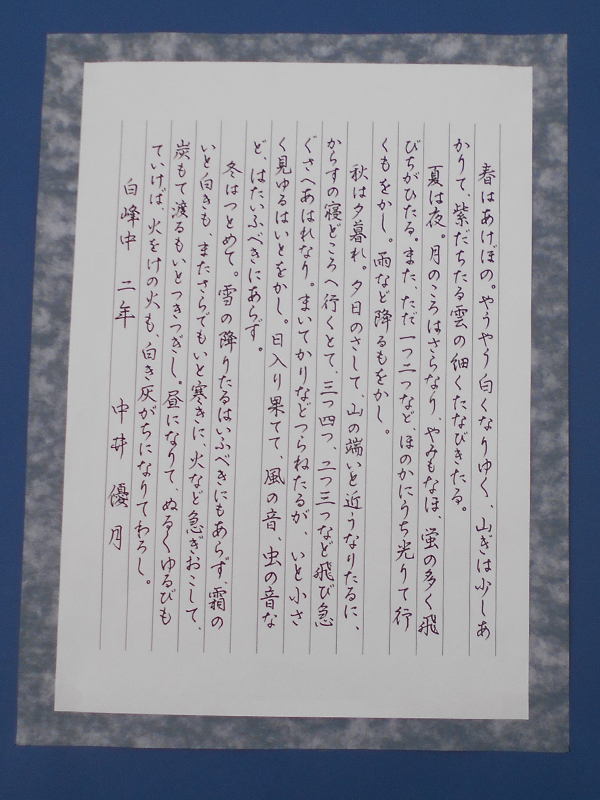 春はあけぼの。やうやう白くなりゆく、山ぎは少しあ
かりて、紫だちたる雲の細くたなびきたる。
夏は夜。月のころはさらなり、やみもなほ、蛍の多く飛
びちがひたる。また、ただ一つ二つなど、ほのかにうち光りて行
くもをかし。雨など降るもをかし。
秋は夕暮れ。夕日のさして、山の端いと近うなりたるに、
からすの寝どころへ行くとて、三つ四つ、二つ三つなど飛び急
ぐさへあはれなり。まいてかりなどつらねたるが、いと小さ
く見ゆるはいとをかし。日入り果てて、風の音、虫の音な
ど、はたいふべきにあらず。
冬はつとめて。雪の降りたるはいふべきにもあらず、霜の
いと白きも、またさらでもいと寒きに、火など急ぎおこして、
炭もて渡るもいとつきづきし。昼になりて、ぬるくゆるびも
ていけば、火をけの火も、白き灰がちになりてわろし。
白峰中 二年 中井 優月